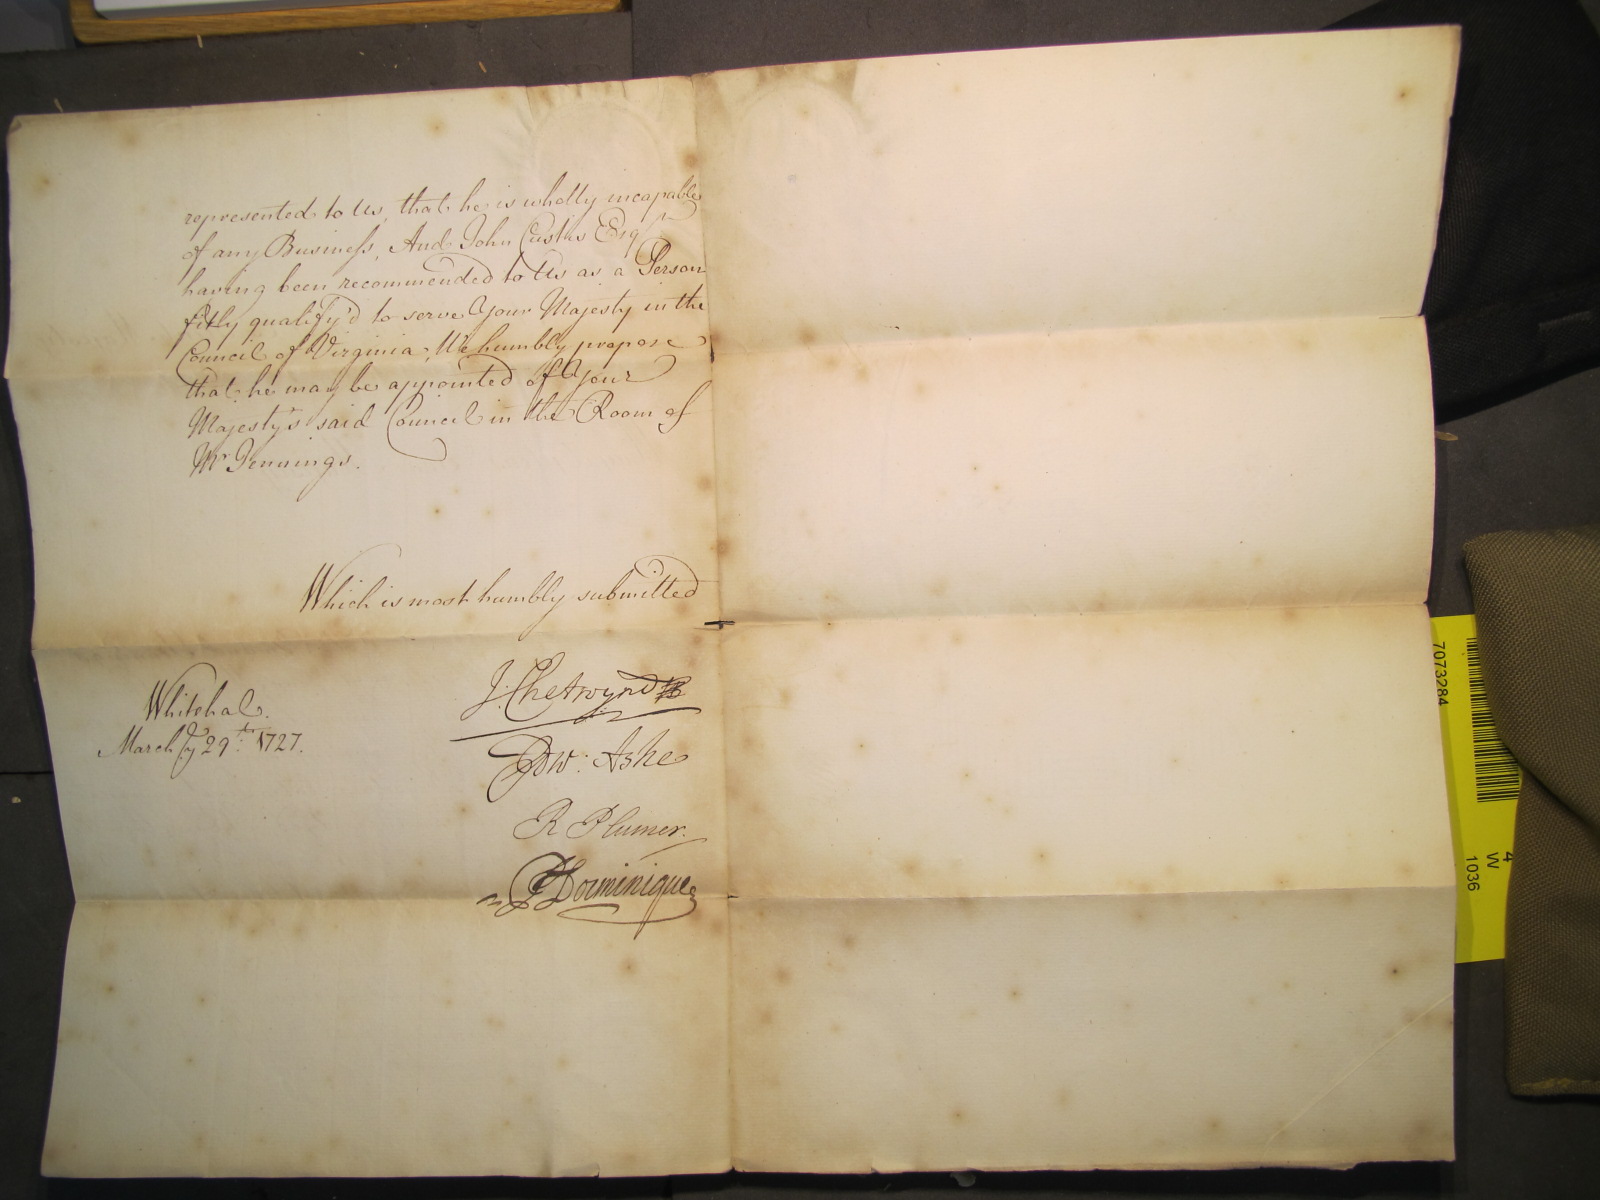 represented to Us, that he is wholly incapable
of any Business, And John Custis Esqr.
having been recommended to Us as a Person
fitly qualify'd to serve Your Majesty in the
Council of Virginia, We humbly propose
that he may be appointed of Your
Majesty's said Council in the Room of
Mr Jennings.
Which is most humbly submitted
Whitehal.
March ye 29th: 1727.
J: Chetwynd
Edw: Ashe
R Plumer.
P Dominique
7073284
4
W
1036